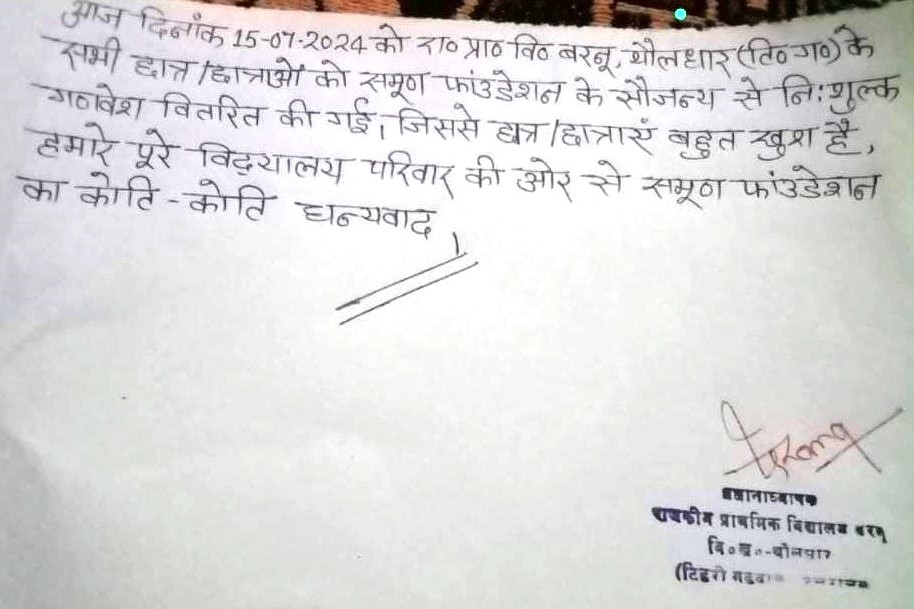 आज दिनाँक 15-07-2024 को रा० प्रा० वि० बरनू, थौलधार (टि० ग०) के
सभी छात्र/छात्राओं को समूण फांउडेशन के सौजन्य से निःशुल्क
गणवेश वितरित की गई, जिससे छात्र/छात्राएं बहुत खुश है,
हमारे पूरे विद्यालय परिवार की ओर से समूण फांउडेशन
का कोटि - कोटि धन्यवाद।
प्रधानाध्यापक
राजकीय प्राथमिक विद्यालय बरनू
वि०ख०-थौलधार
(टिहरी गढ़वाल